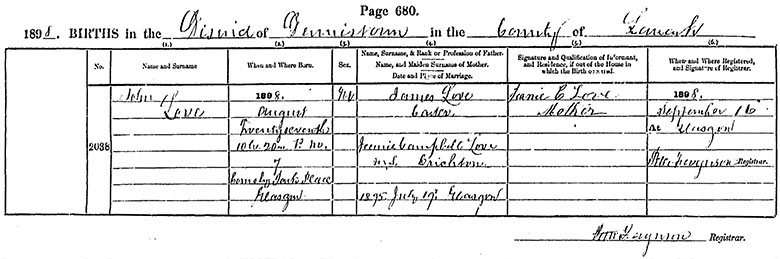 Page 680.
1898. BIRTHS in the District of Dennistoun in the County of Lanark
(1.) (2.) (3.) (4.) (5.) (6.)
No. Name and Surname When and Where Born. Sex. Name, Surname, & Rank or Profession of Father. Name, and Maiden Surname of Mother. Date and Place of Marriage. Signature and Qualification of Informant, and Residence, if out of the House in which the Birth occurred. When and Where Registered, and Signature of Registrar.
John 1898. M James Love Jeanie C. Love 1898.
Love August Carter Mother September 16
Twentyseventh At Glasgow
2038 10h. 20m. P.M. Jeanie Campbell Love
7 M.S. Crichton Wm Ferguson Registrar.
Comely Park Place
Glasgow 1895 July 19 Glasgow
Wm Ferguson Registrar.